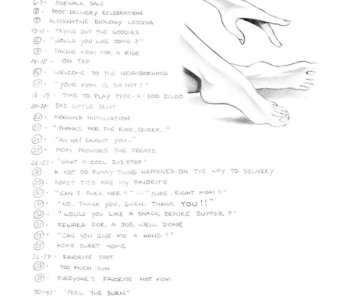 6-7 - SIDEWALK SALE
- POST DELIVERY CELEBRATION
- ALTERNATIVE BIOLOGY LESSON
10-11 - TRYING OUT THE GOODIES
- "WOULD YOU LIKE SOME?"
- TAKING MOM FOR A RIDE
14-15 - ON TAP
- WELCOME TO THE NEIGHBORHOOD
- "YOUR MOM IS SO HOT!"
18-19 - TIME TO PLAY PEEK-A-BOO DILDO
- BAD LITTLE
- MORNING HUMILIATION
- "THANKS FOR THE RIDE, QUEER..."
- "AH HA! CAUGHT YOU..."
- MOM PROVIDES THE TREATS
- "WHAT A COOL BUS STOP"
- A NOT SO FUNNY THING HAPPENED ON THE WAY TO DELIVERY
- ROAST TITS ARE MY FAVORITE
- "CAN I FUCK HER?" - "SURE, RIGHT MOM?"
- "NO, THANK YOU, GWEN. THANK YOU!!"
- "WOULD YOU LIKE A SNACK BEFORE SUPPER?"
- REWARD FOR A JOB WELL DONE
- "CAN YOU GIVE ME A HAND?"
- HOME SWEET HOME
- FAVORITE SPOT
- TOO MUCH SUN
- EVERYONE'S FAVORITE HOT MOM
- "FEEL THE BURN"